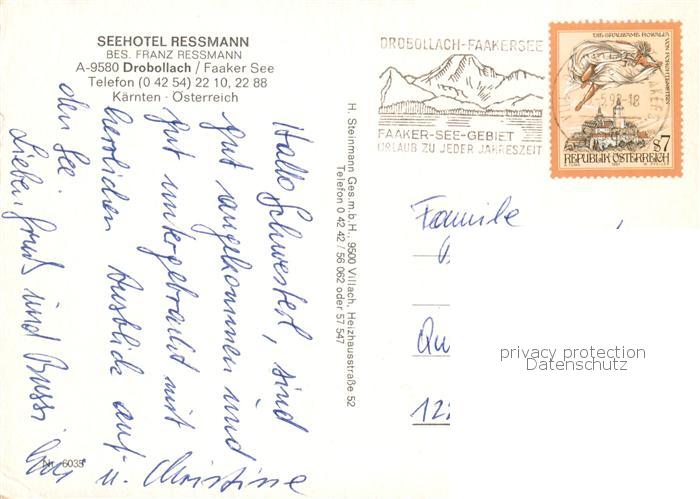 SEEHOTEL RESSMANN
BES. FRANZ RESSMANN
A-9580 Drobollach / Faaker See
Telefon (0 42 54) 22 10, 22 88
Kärnten · Österreich
DROBOLLACH-FAAKERSEE
FAAKER-SEE-GEBIET
URLAUB ZU JEDER JAHRESZEIT
DIE GRAUSAME ROSALIA VON FORCHTENSTEIN
S7
REPUBLIK ÖSTERREICH
H. Steinmann Ges.m.b.H., 9500 Villach, Heizhausstraße 52
Telefon 0 42 42 / 56 062 oder 57 547
Hallo Schwesterl, sind
gut angekommen und
gut untergebracht mit
herrlichen Ausblick auf
den See.
Lieben Gruß und Bussi
u. Christine
Nr. 6035
Familie
Qu
12
privacy protection
Datenschutz